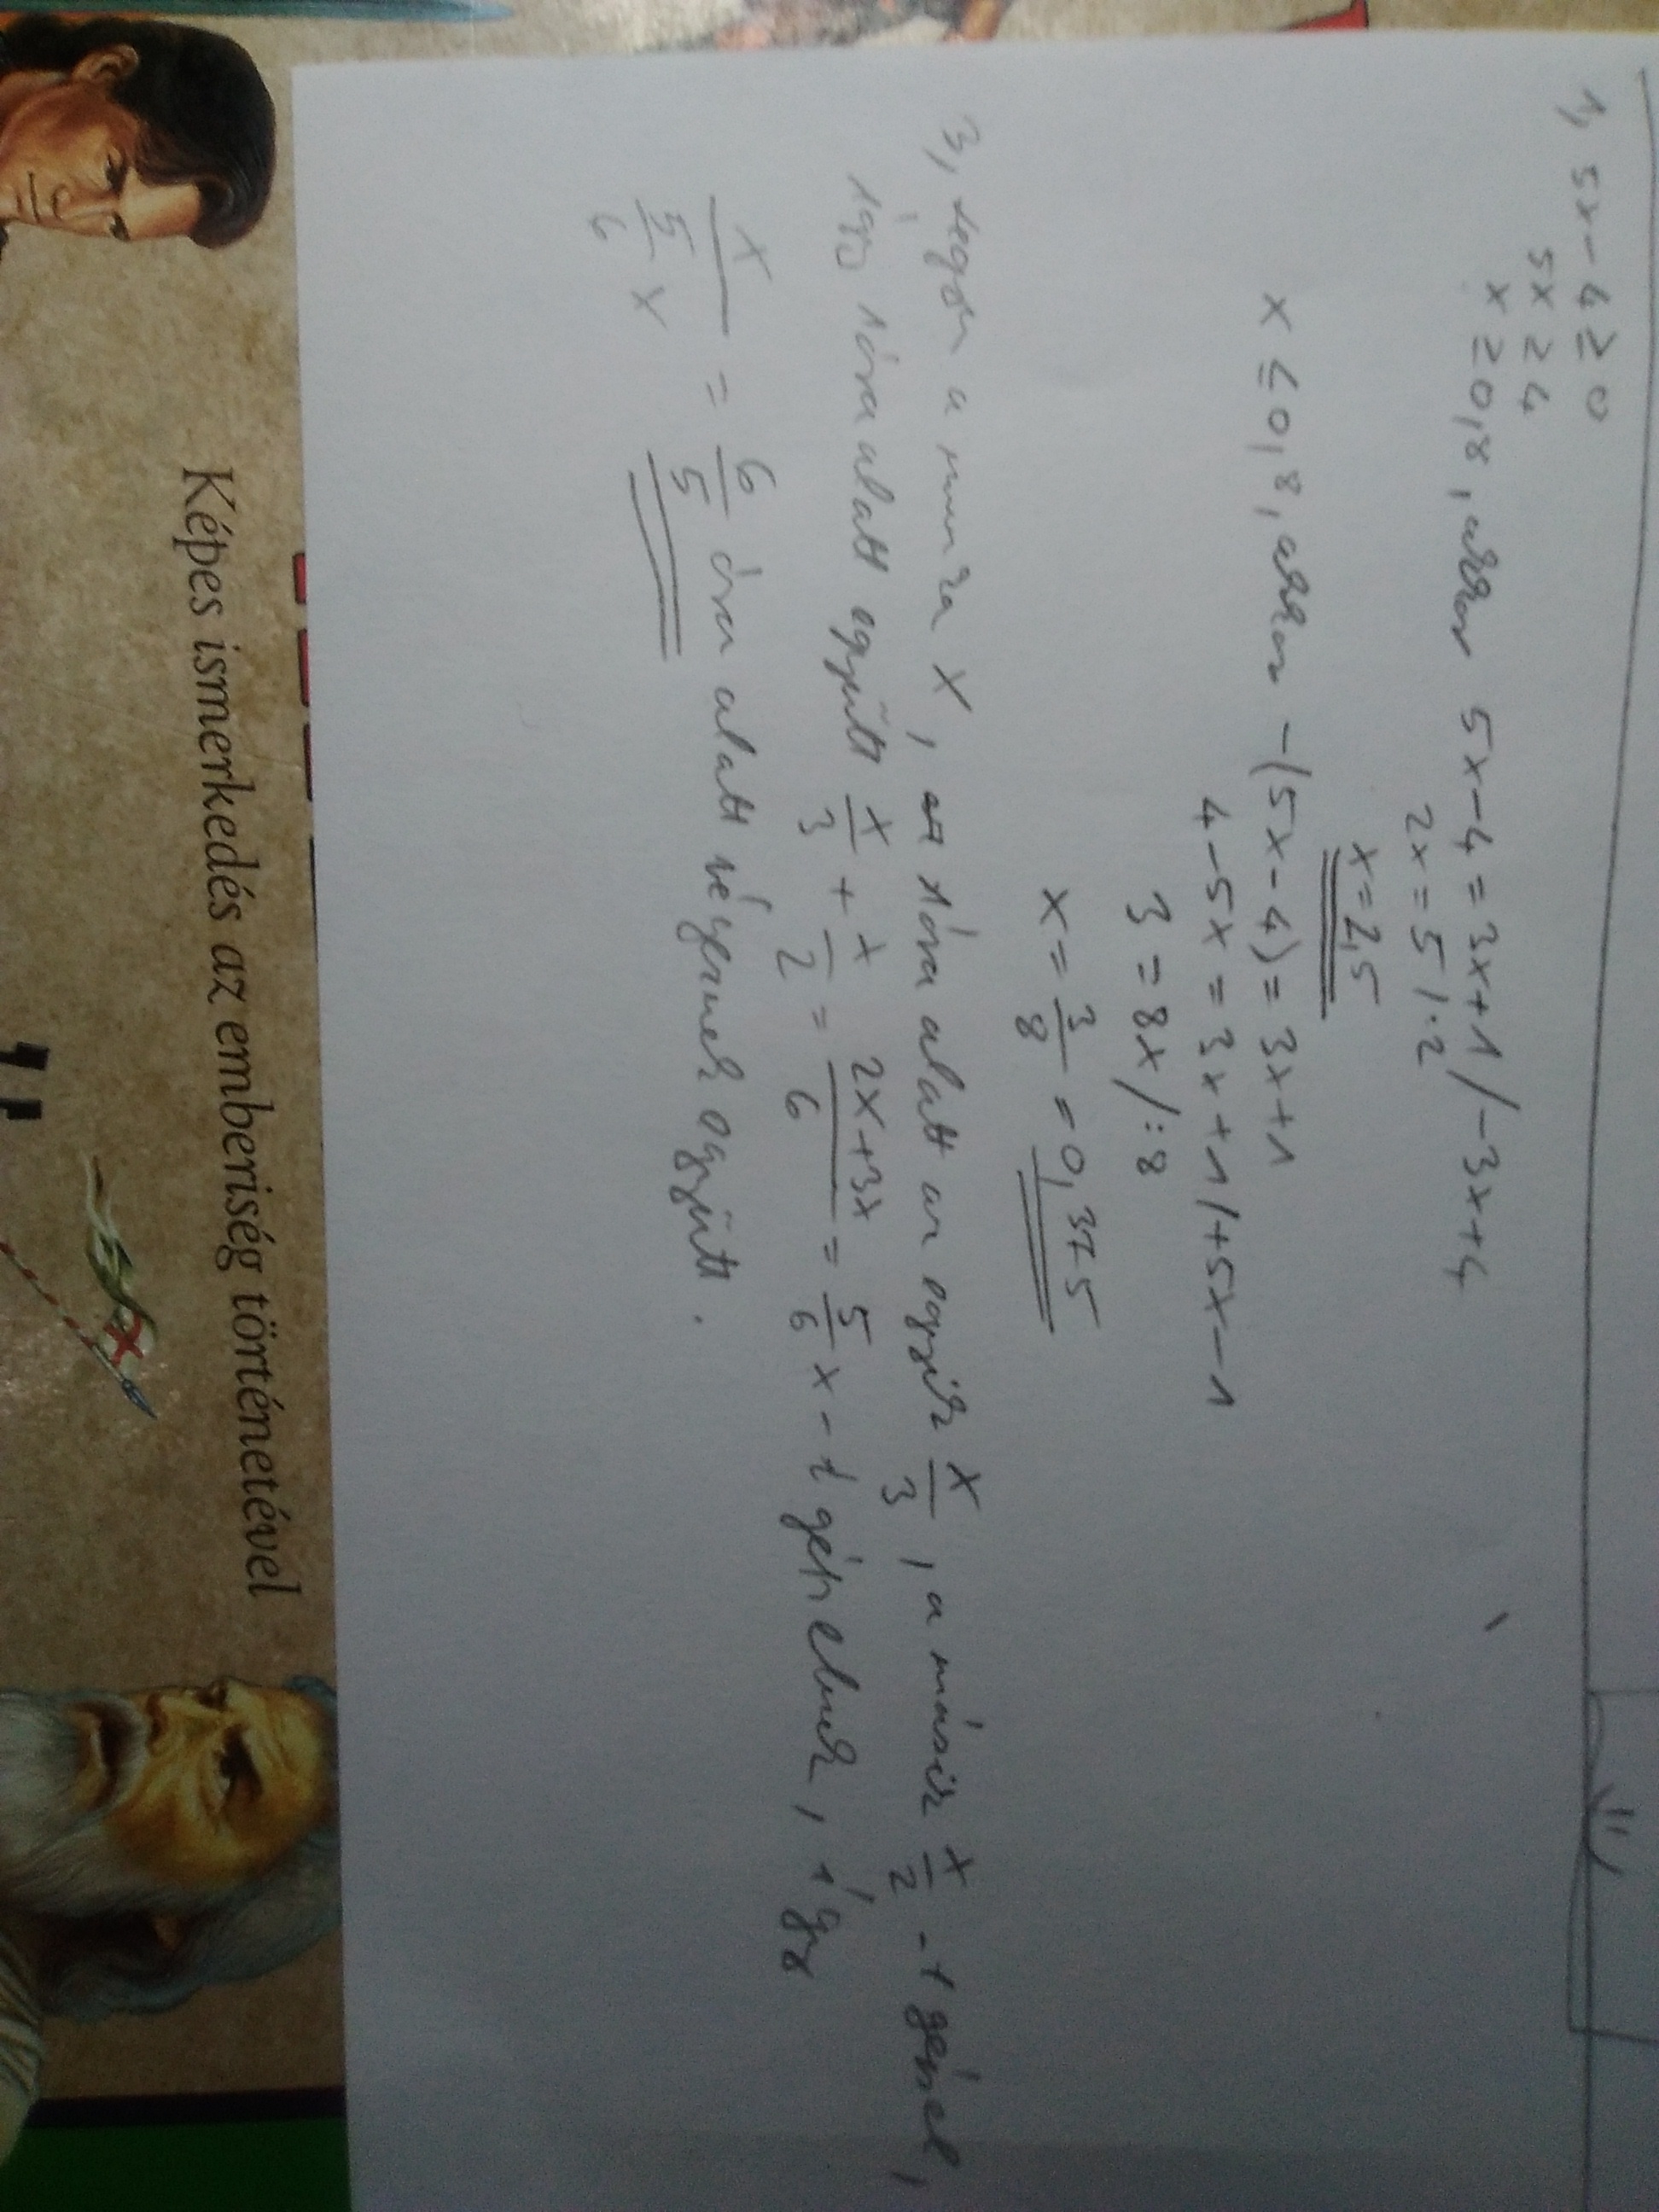 1, 5x-4≥0
5x≥4
x≥0,8, akkor 5x-4=3x+1/-3x+4
2x=5/:2
x=2,5
x≤0,8, akkor -(5x-4)=3x+1
4-5x=3x+1/+5x-1
3=8x/:8
x=3/8=0,375
3, legyen a munka x, 1 óra alatt az egyik x/3, a másik x/2-t gépel,
így 1 óra alatt együtt x/3+x/2=2x+3x/6=5/6x-t gépelnek, így
x/5/6x=6/5 óra alatt végeznek együtt.
Képes ismerkedés az emberiség történetével